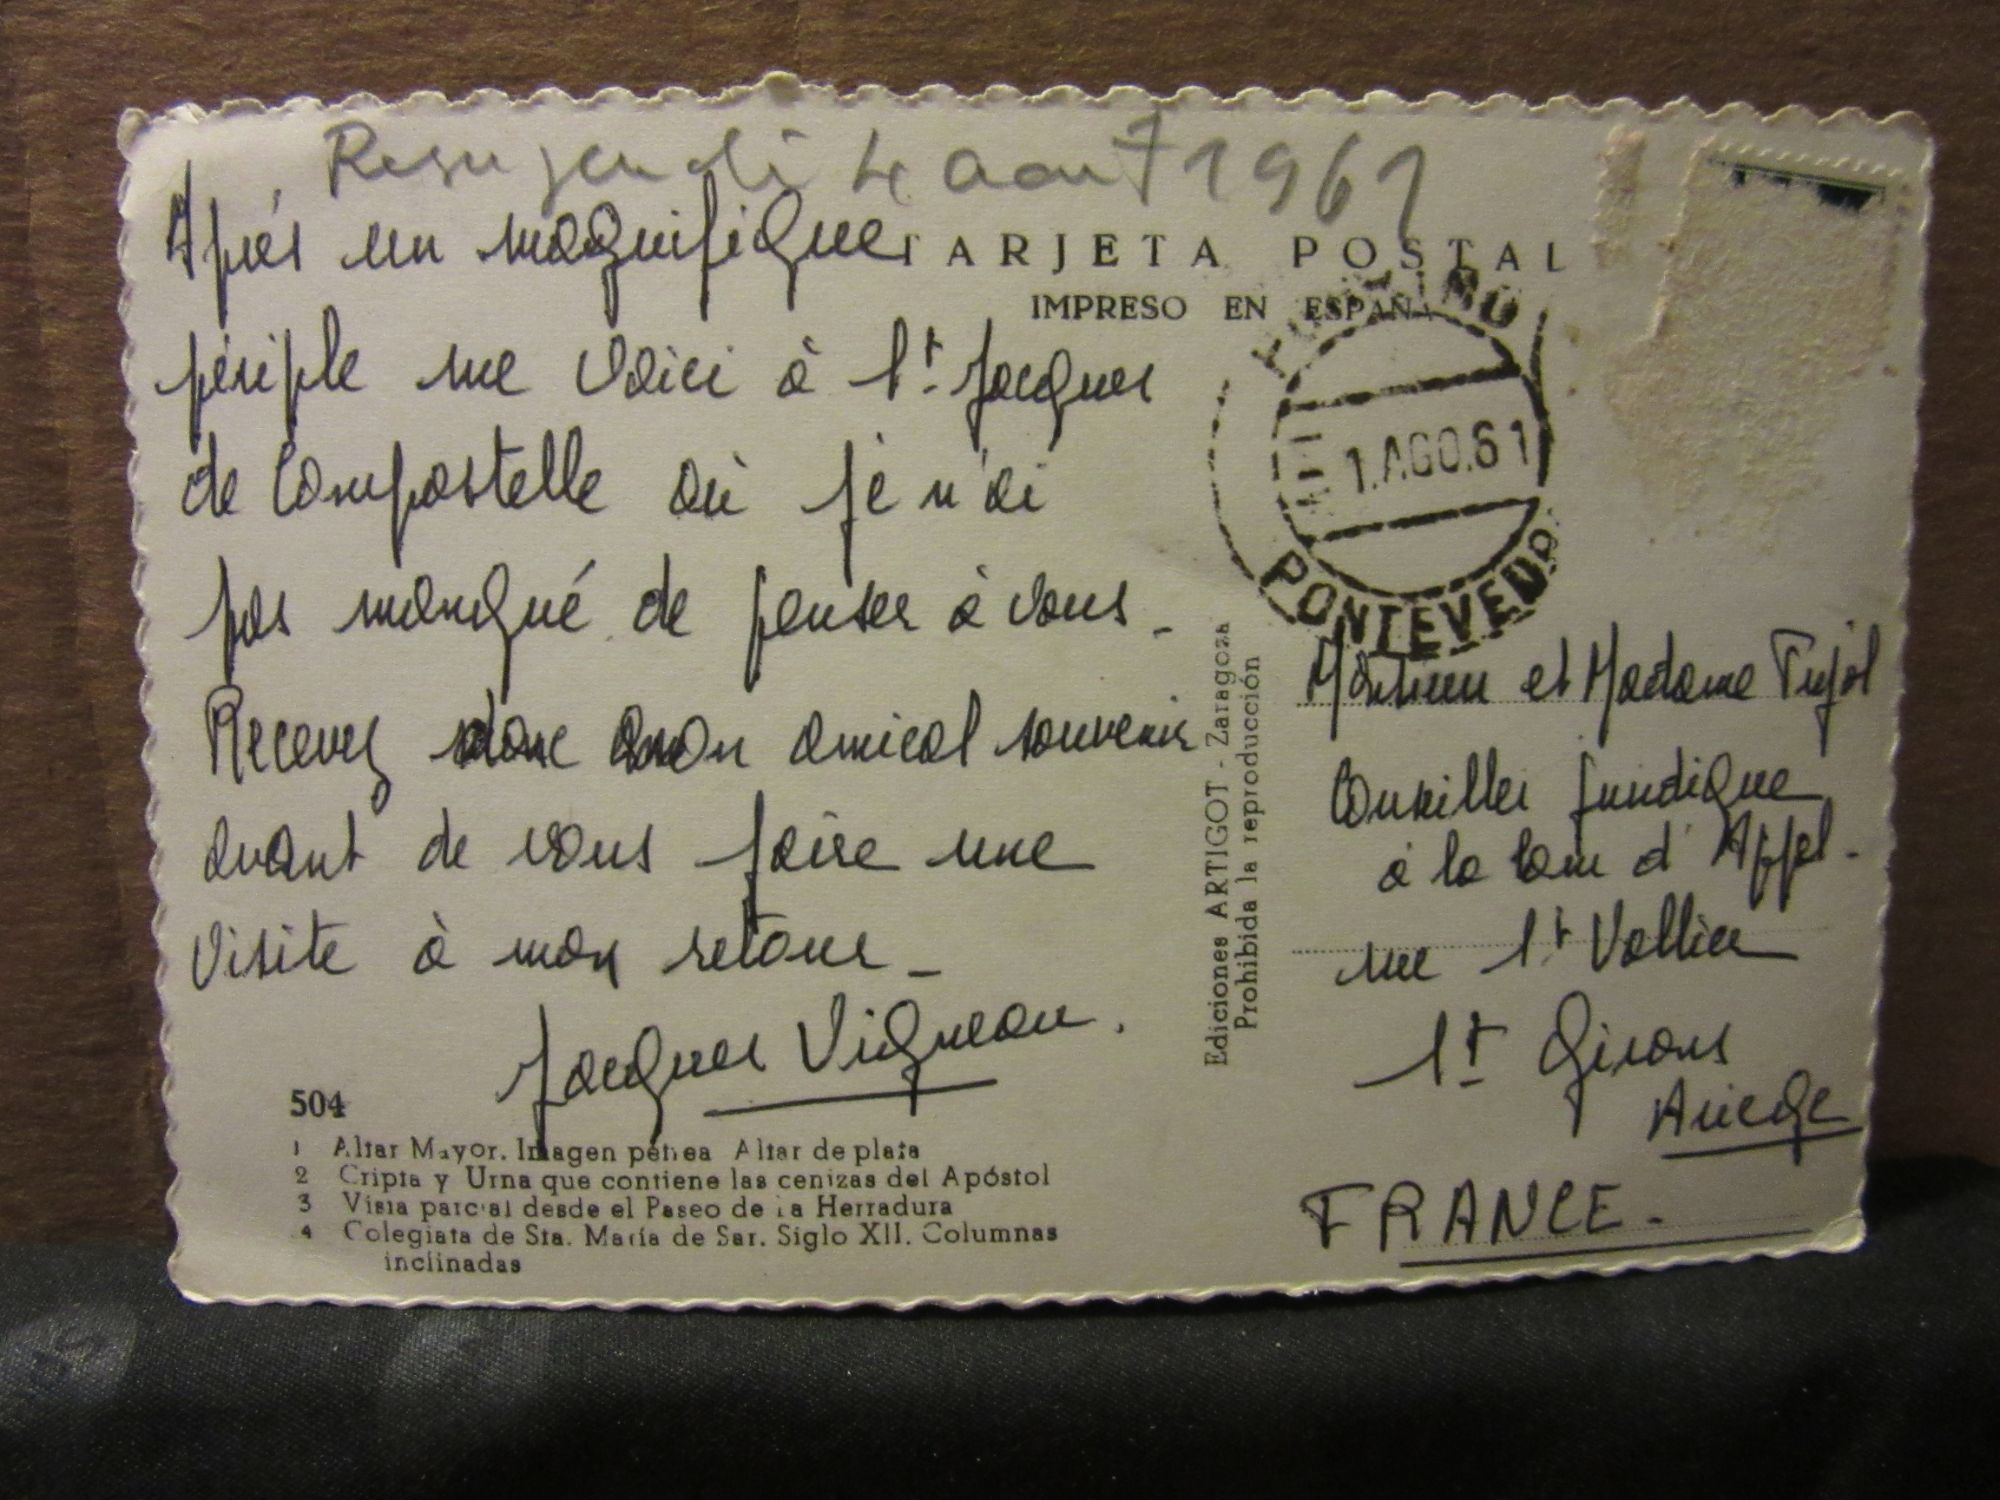 Reçu jeudi 4 aout 1961
TARJETA POSTAL
IMPRESO EN ESPAÑA
Après un magnifique
périple me voici à St. Jacques
de Compostelle où je n'ai
pas manqué de penser à vous -
Recevez donc mon amical souvenir
avant de vous faire une
visite à mon retour -
Jacques Vigneau.
1. AGO. 61
PONTEVEDR
Ediciones ARTIGOT - Zaragoza
Prohibida la reproducción
Monsieur et Madame Pujol
Conseiller juridique
à la Cour d'Appel -
rue St Vallier
St Girons
Ariege
FRANCE -
504
1 Altar Mayor. Imagen pétrea Altar de plata
2 Cripta y Urna que contiene las cenizas del Apóstol
3 Vista parcial desde el Paseo de la Herradura
4 Colegiata de Sta. María de Sar. Siglo XII. Columnas
inclinadas